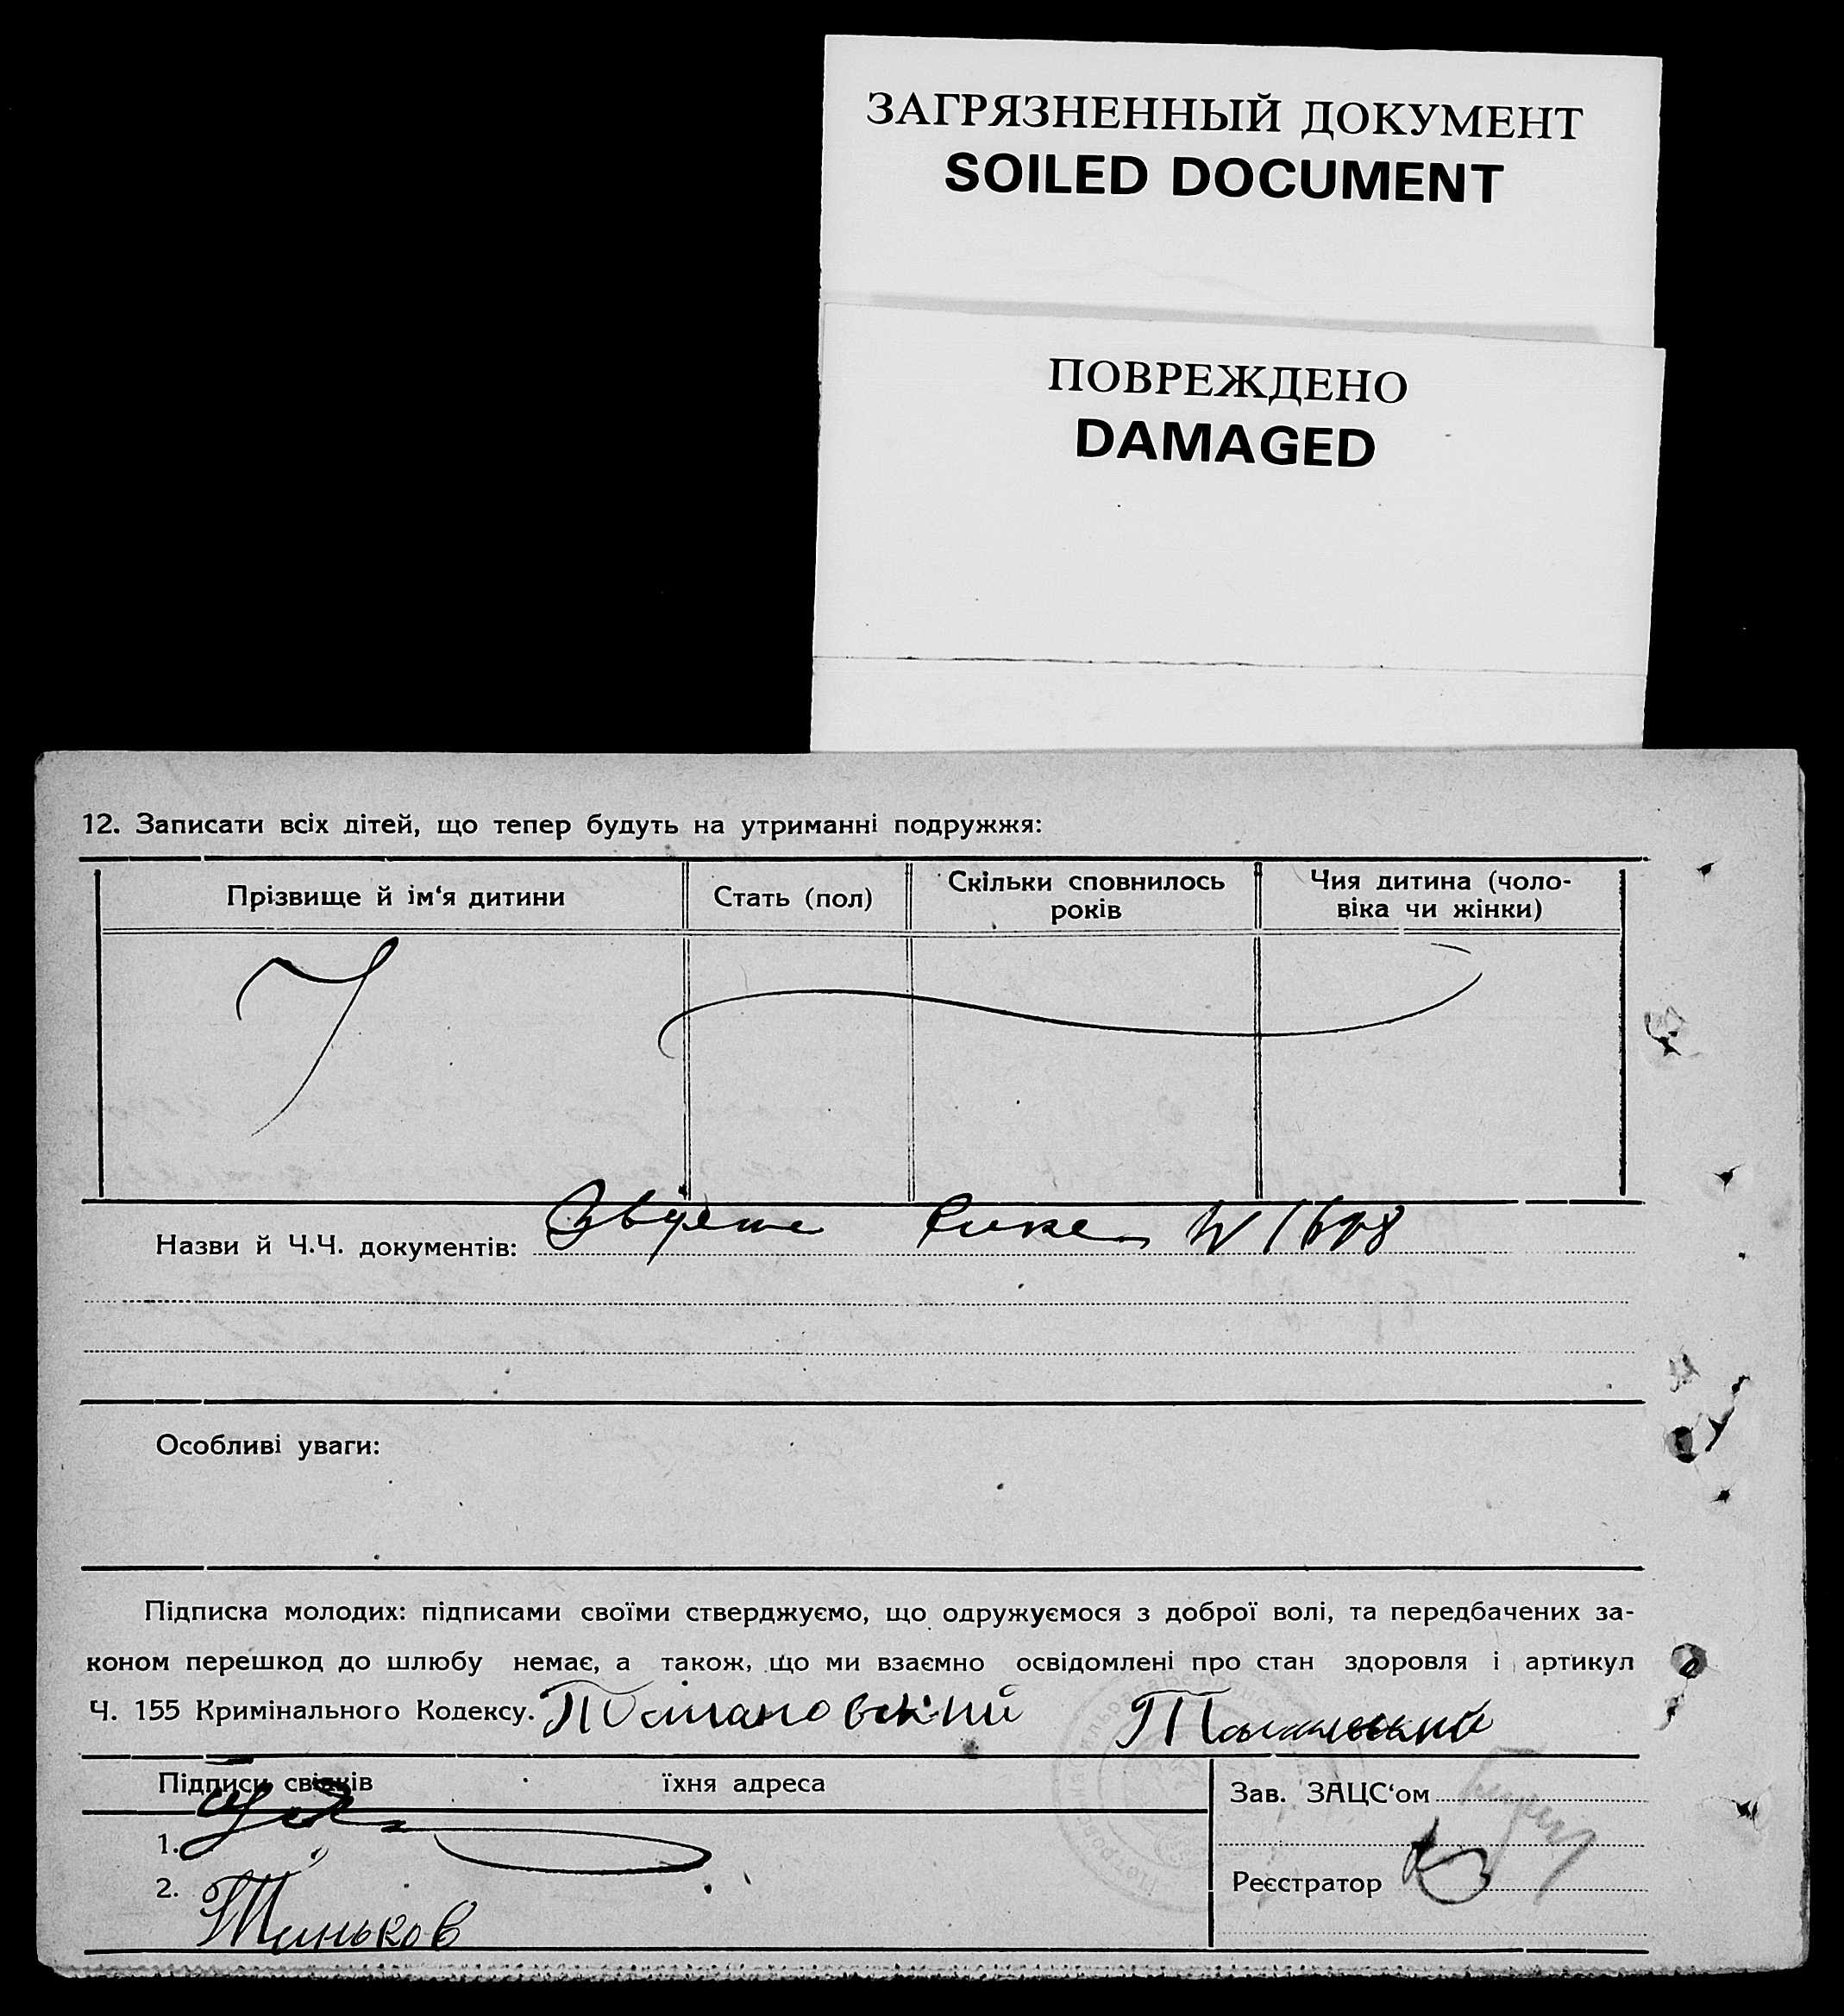 ЗАГРЯЗНЕННЫЙ ДОКУМЕНТ
SOILED DOCUMENT
ПОВРЕЖДЕНО
DAMAGED
12. Записати всіх дітей, що тепер будуть на утриманні подружжя:
Прізвище й ім‘я дитини Стать (пол) Скільки сповнилось років Чия дитина (чоло-віка чи жінки)
Назви й Ч.Ч. документів:
Особливі уваги:
Підписка молодих: підписами своїми стверджуємо, що одружуємося з доброї волі, та передбачених за-
коном перешкод до шлюбу немає, а також, що ми взаємно освідомлені про стан здоровля і артикул
Ч. 155 Кримінального Кодексу.
Підписи свідків їхня адреса
Зав. ЗАЦС‘ом
1.
Реєстратор
2. Тиньков